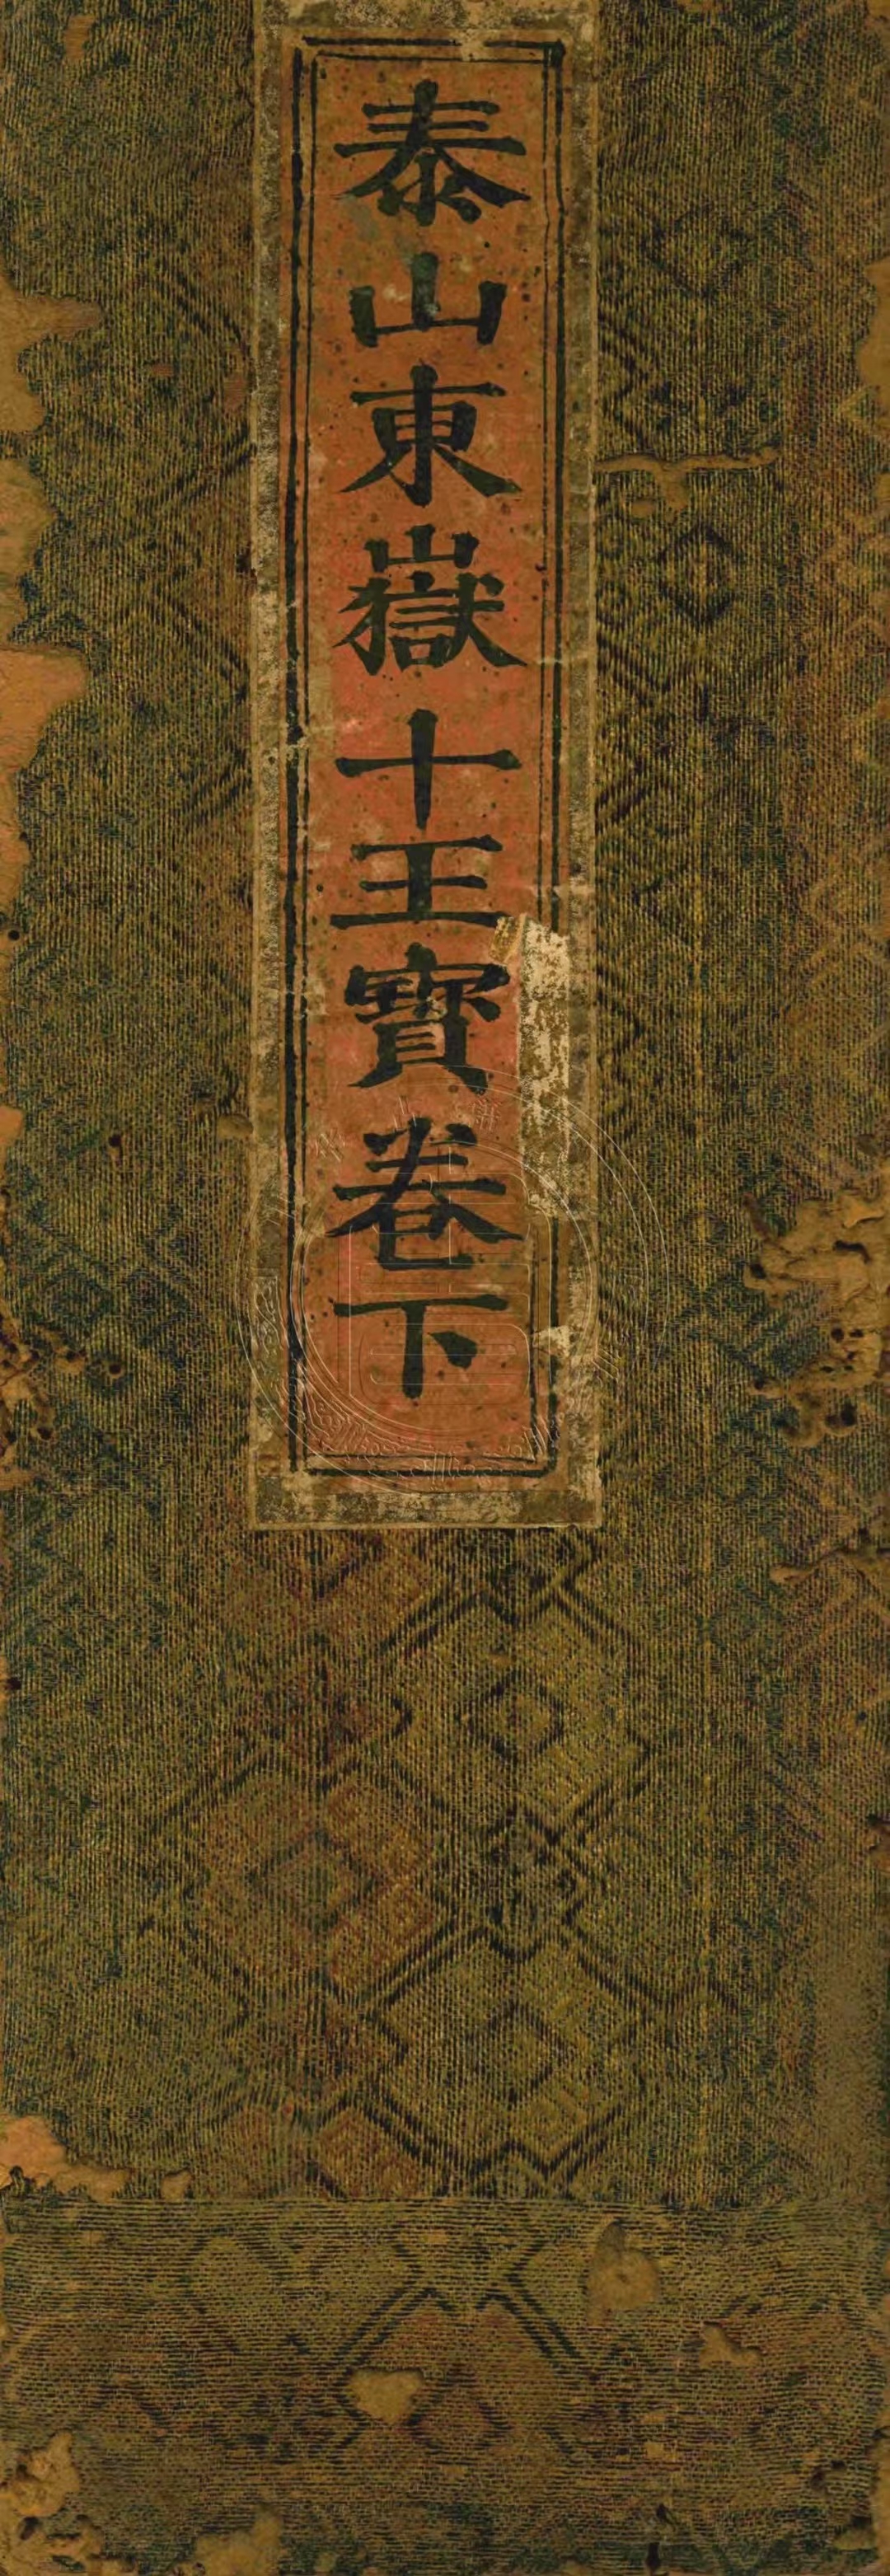 泰山東嶽十王寶卷下